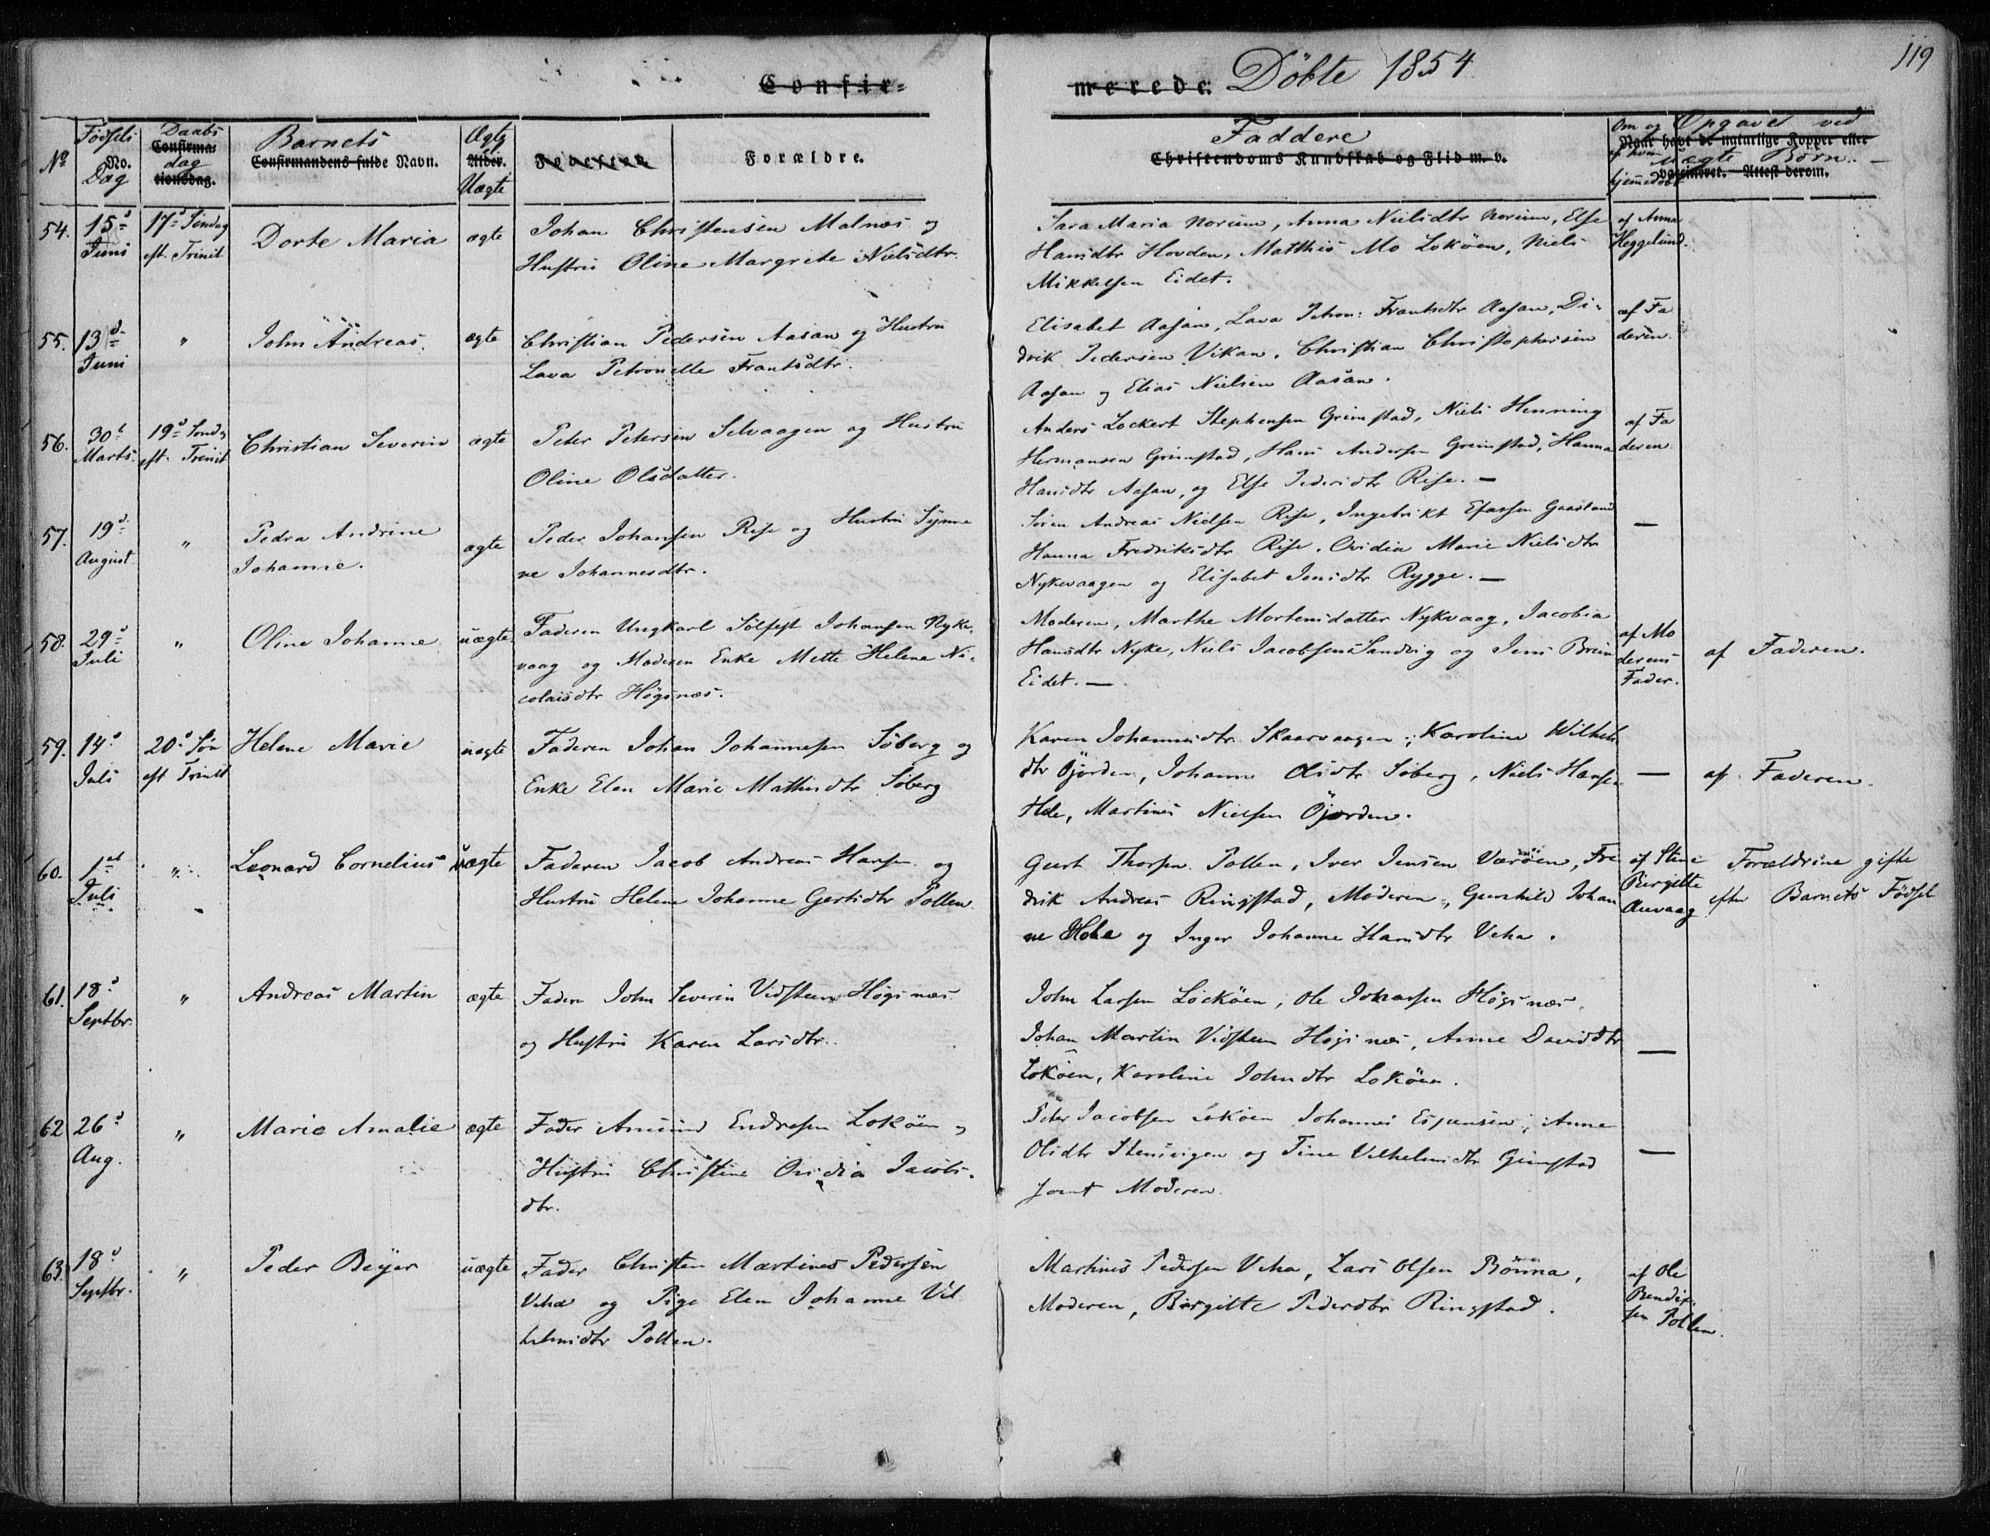 Confir= merede: Döbte 1854 119
No Fødsels No. Dag Daabs Confirma= dag tionsdag. Barnets Confirmandens fulde Navn. Ægte Alder. Uægte Forældre. Faddere Christendoms Kundskab og Flid m. v. Om og af hvem hjemmedøbt Opgavet ved uægte Børn. Naar havt de naturlige Kopper eller vaccineret. Attest derom.
54. 15d Juni 17d Søndag eft. Trinit Dorte Maria ægte
Johan Christensen Malnæs og
Hustru Oline Margrete Nielsdtr.
Sara Maria Norum, Anna Nielsdtr Norum, Else
Hansdtr Hovden, Matthis Mo Lokøen, Niels
Mikkelsen Eidet.
af Anna
Heggelund.
55. 13d Juni " John Andreas. ægte
Christian Pedersen Aasan og Hustru
Lava Petronelle Frantsdtr.
Elisabet Aasan, Lava Petron: Frantsdtr Aasan, Di-
drik Pedersen Vikan, Christian Christophersen
Aasan og Elias Nielsen Aasan.
af Fa
deren.
56. 30t Marts. 19d Sønd. eft. Trinit Christian Severin ægte
Peter Petersen Selvaagen og Hustru
Oline Olsdatter.
Anders Lockert Stephensen Grimstad, Niels Henning
Hermansen Grimstad, Hans Andersen Grimstad, Hanna
Hansdtr Aasan, og Else Pedersdtr Rise. —
af Fa
deren.
57. 19d August " Pedra Andrine
Johanne. ægte
Peder Johansen Rise og Hustru Synne
ne Johannesdtr.
Søren Andreas Nielsen Rise, Ingebrikt Esaisen Gaasland
Hanna Fredriksdtr Rise, Ovidia Marie Nielsdtr
Nykvaagen og Elisabet Jensdtr Rygge. —
—
58. 29d Juli " Oline Johanne. uægte
Faderen Ungkarl Sølfest Johansen Nyke-
vaag og Moderen Enke Mette Helene Ni-
colaisdtr Høgsnæs.
Moderen, Marthe Mortensdatter Nykvaag, Jacobia
Hansdtr Nyke, Niels Jacobsen Sandvig og Jens Brun
Eidet. —
af Mo
derens
Fader.
af Faderen.
59. 14d Juli 20d Søn eft Trinit Helene Marie uægte
Faderen Johan Johannesen Søberg og
Enke Elen Marie Mathisdtr Søberg
Karen Johannesdtr Skaarvaagen, Karoline Wilhel.
dtr Öjorden, Johanne Olsdtr Søberg, Niels Hansen
Hole, Martines Nielsen Öjorden.
— af Faderen.
60. 1st Juli " Leonard Cornelius uægte
Faderen Jacob Andreas Hansen og
Hustru Helene Johanne Gertsdtr Pollen
Geert Thorsen Pollen, Iver Jensen Værøen, Fre
drik Andreas Ringstad, Moderen, Gunhild Johan
ne Hole og Inger Johanne Hansdtr Veha.
af Stine
Birgitte
Auvaag
Forældrene gifte
efter Barnets Fødsel
61. 18d Septbr. " Andreas Martin ægte
Fader John Severin Vidsteen Høgsnæs
og Hustru Karen Larsdtr.
John Larsen Lockøen, Ole Johansen Høgsnæs,
Johan Martin Vidsteen Høgsnæs, Anne Davidsdtr
Lokøen, Karoline Johnsdtr Lokøen.
—
62 26d Aug. " Marie Amalie ægte
Fader Amund Endresen Lokøen og
Hustru Christine Ovidia Jacobs-
dtr.
Peter Jacobsen Lekøen Johannes Espensen, Anne
Olsdtr Stensvigen og Tine Vilhelmsdtr Grimstad
samt Moderen.
—
63. 18d Septbr. " Peder Beyer uægte
Fader Christen Martines Pedersen
Veha og Pige Elen Johanne Vil
helmsdtr Pollen.
Martines Pedersen Veha, Lars Olsen Rönna,
Moderen, Birgitte Pedersdtr Ringstad.
af Ole
Bendix
sen Pollen.